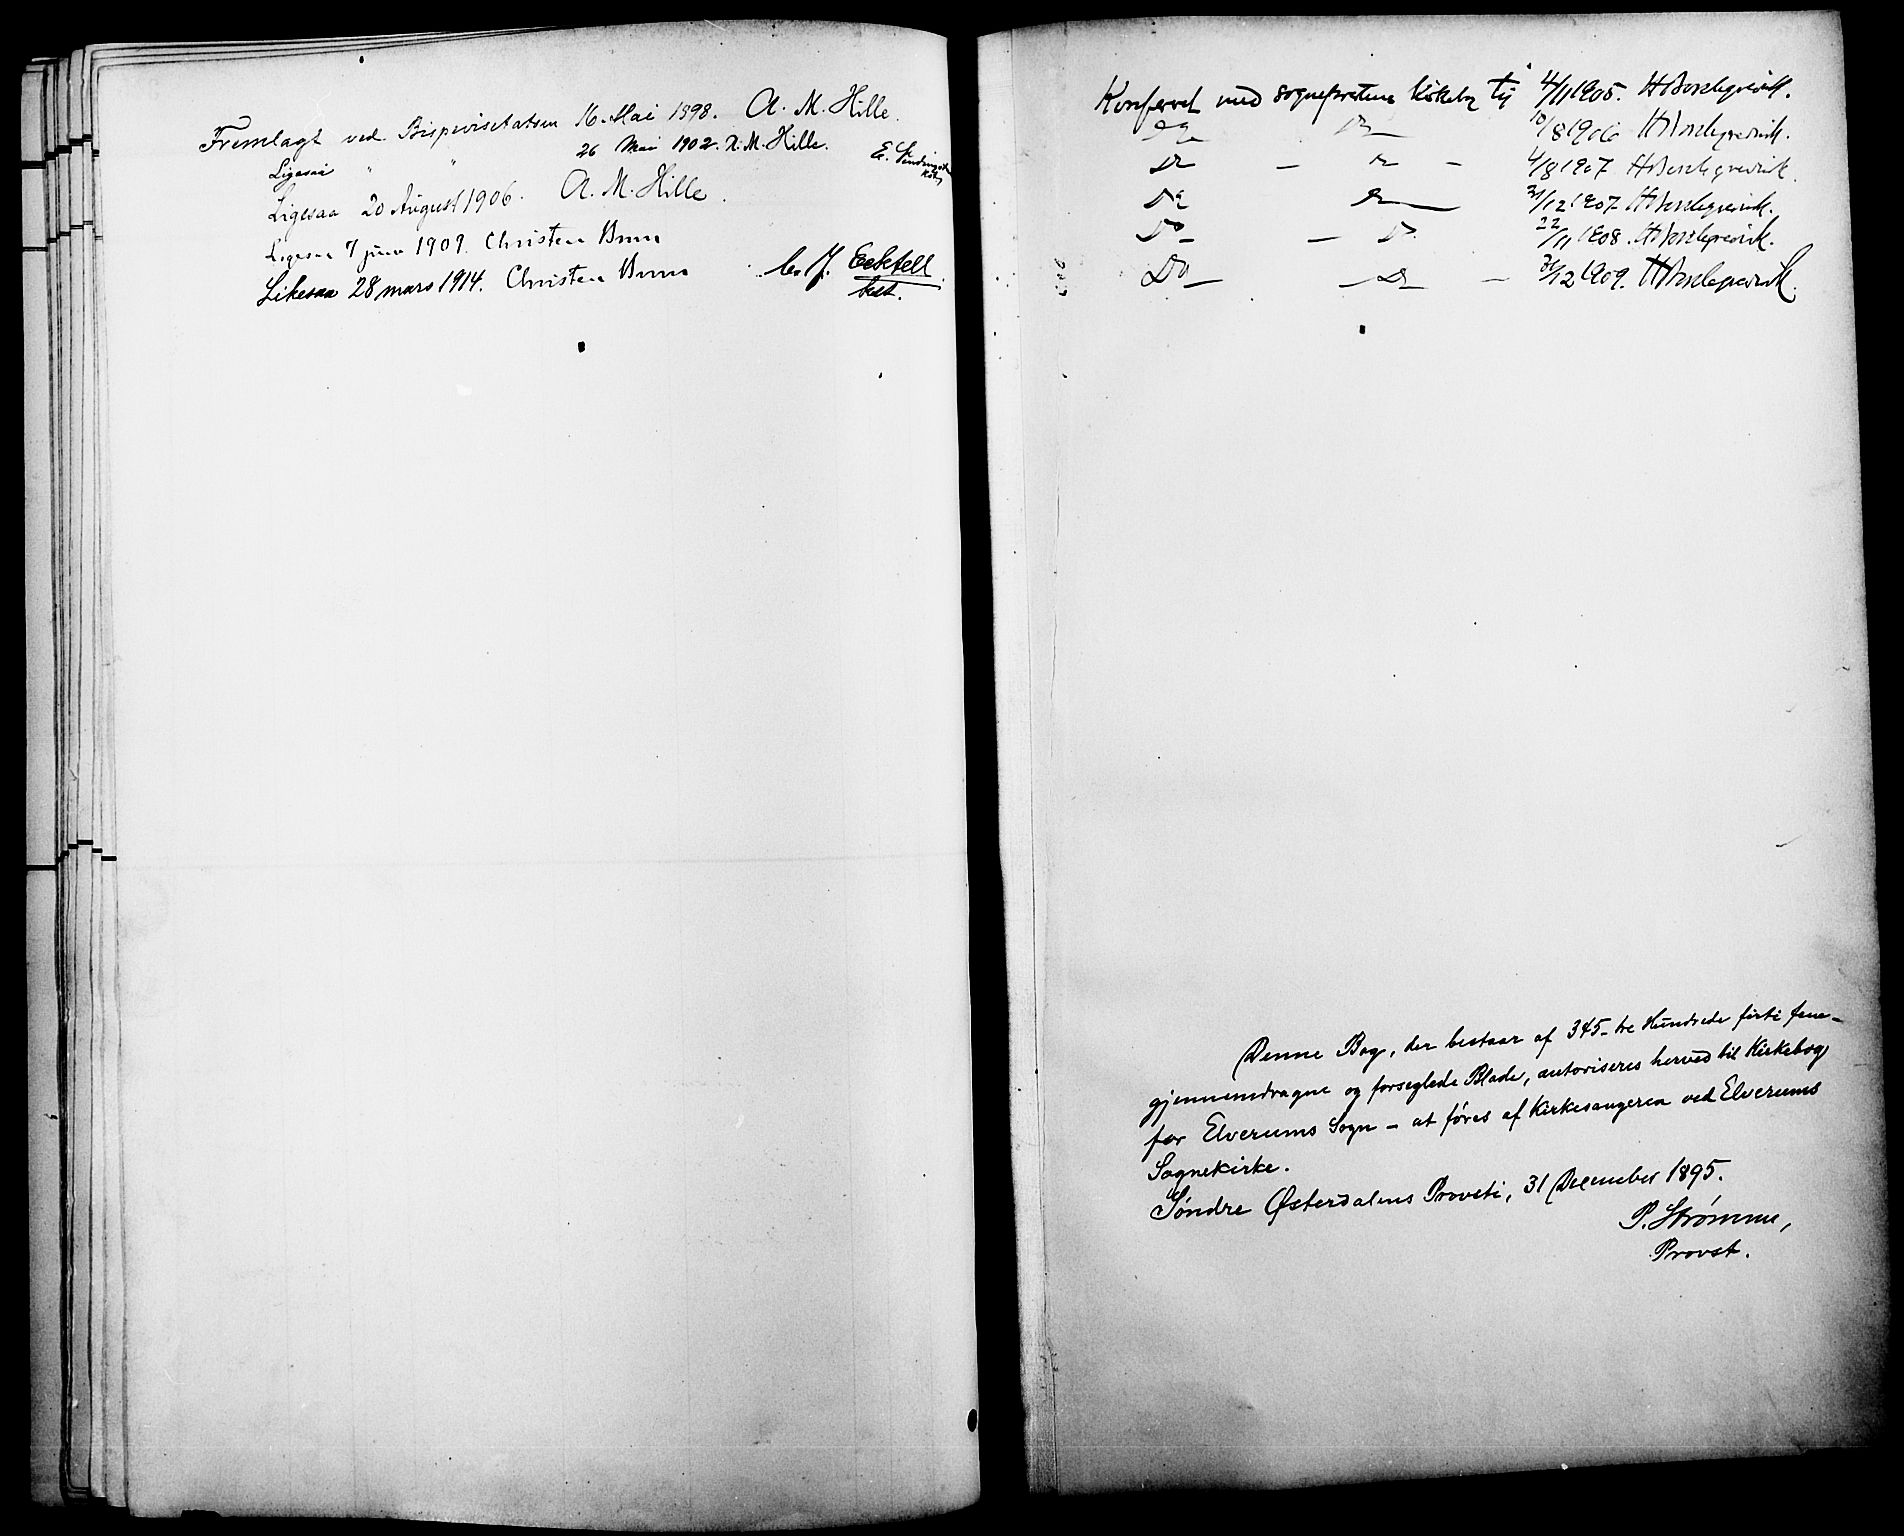 Fremlagt ved Bispevisitatsen 16. Mai 1898. A. M. Hille.
Ligesaa " " 26 Mai 1902. A. M. Hille. E.
Ligesaa 20 August 1906. A. M. Hille.
Ligesaa 7 juni 1909. Christen Brun
Likesaa 28 mars 1914. Christen Brun
Konferert med sogneprestens kirkebog til 4/11 1905.
Do Do 10/8 1906
Do - Do - 4/8 1907
Do Do 31/12 1907
Do - Do 22/11 1908.
Do - Do - 31/12 1909.
Denne Bog, der bestaar af 345 - tre Hundrede förti fem -
gjennemdragne og forseglede Blade, autoriseres herved til Kirkebog
for Elverums Sogn - at føres af Kirkesangeren ved Elverums
Sognekirke.
Søndre Østerdalens Provsti, 31 December 1895.
P. Strømme,
Provst.